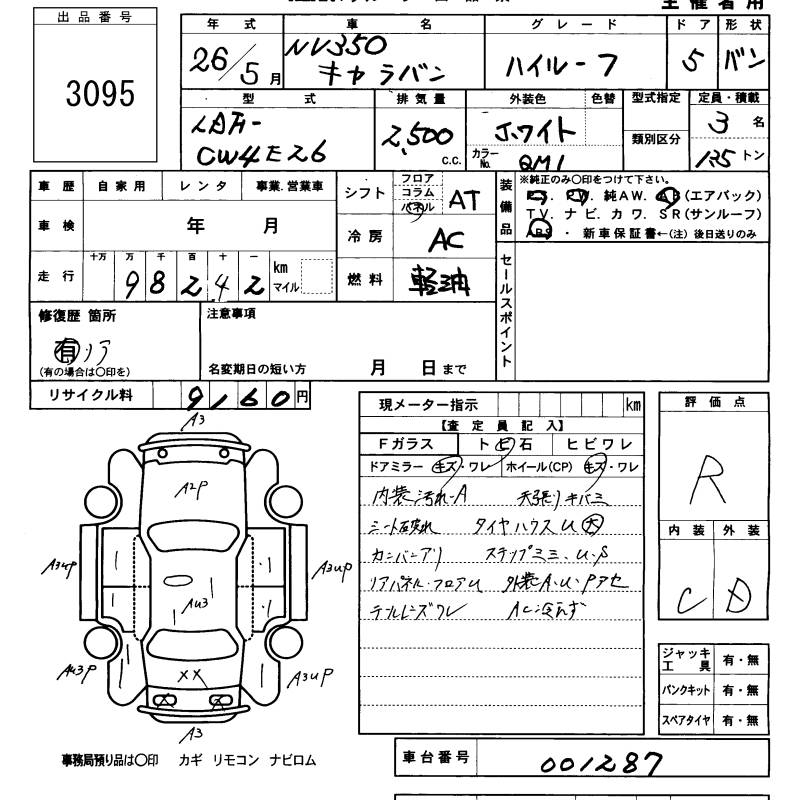 出品番号
3095
年式 車名 グレード ドア 形状
26/5月 NV350 キャラバン ハイルーフ 5 バン
型式 排気量 外装色 色替 型式指定 定員・積載
LDF-
CW4E26 2,500 c.c. ホワイト カラーNo. QM1 類別区分 3名
トン
車歴 自家用 レンタ 事業.営業車
車検 年 月
走行 十万 万 千 百 十 一
98242 km マイル
シフト フロア コラム パネル AT
冷房 AC
燃料 軽油
装備品 ※純正のみ〇印をつけて下さい。
PS. PW. 純AW. AB(エアバック)
TV. ナビ. カワ. SR(サンルーフ)
ABS ・ 新車保証書←(注)後日送りのみ
セールスポイント
修復歴 箇所
有 リア
(有の場合は〇印を)
注意事項
名変期日の短い方 月 日まで
リサイクル料 9160円
現メーター指示 km
【査定員記入】
Fガラス トビ石 ヒビワレ
ドアミラー キズ・ワレ ホイール(CP) キズ・ワレ
内装汚れ-A 天張りキバミ
シート破れ タイヤハウスU大
カンバンアリ ステップミミ、U.S
リアパネル・フロアU 外装A.U.Pアセ
テールレンズワレ AC冷えず
評価点
R
内装 外装
C D
A3
A2P
A3UP
AU3
AU3P
A3UP
XX
A3
ジャッキ工具 有・無
パンクキット 有・無
スペアタイヤ 有・無
事務局預り品は〇印 カギ リモコン ナビロム
車台番号 001287